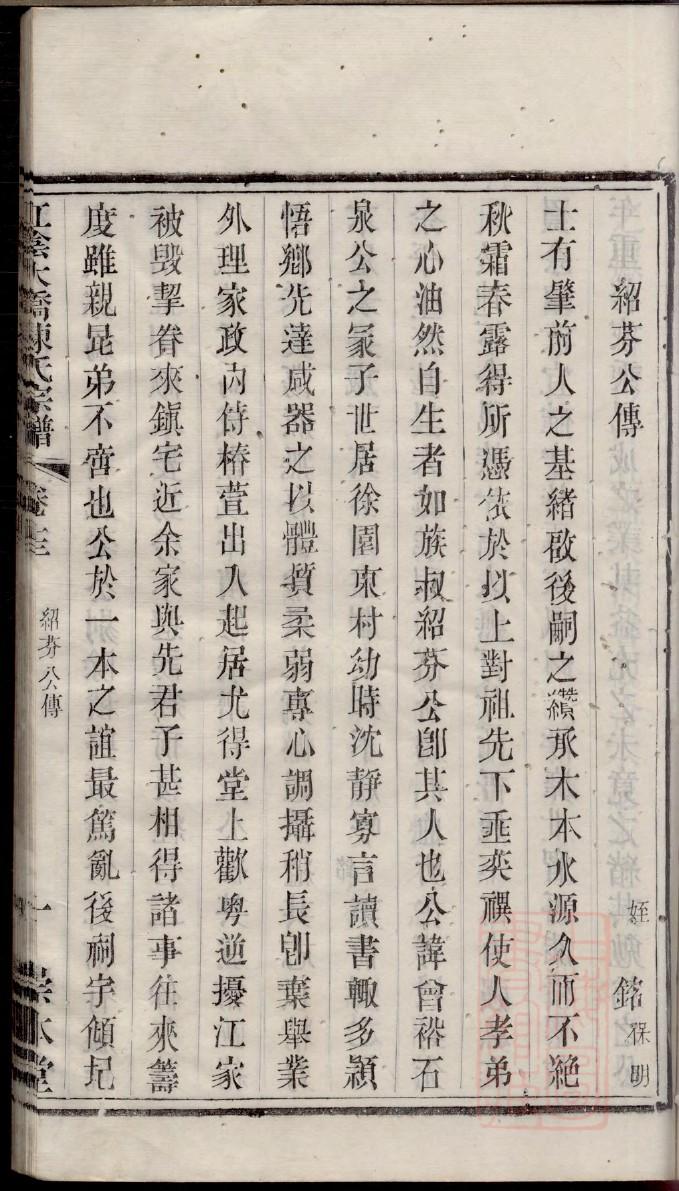 紹芬公傳　姪　銘　保明
士有肇前人之基緒啟後嗣之纘承木本水源久而不絶
秋霜春露得所憑依於以上對祖先下垂奕禩使人孝弟
之心油然自生者如族叔紹芬公卽其人也公諱曾裕石
泉公之冢子世居徐園東村幼時沈靜寡言讀書輙多穎
悟鄉先達咸器之以體質柔弱專心調攝稍長卽棄舉業
外理家政內侍椿萱出入起居尤得堂上歡粤逆擾江家
被毁挈眷來鎭宅近余家與先君子甚相得諸事往來籌
度雖親昆弟不啻也公於一本之誼最篤亂後祠宇傾圮
江陰大橋陳氏宗譜　卷十三　紹芬公傳　一　崇本堂